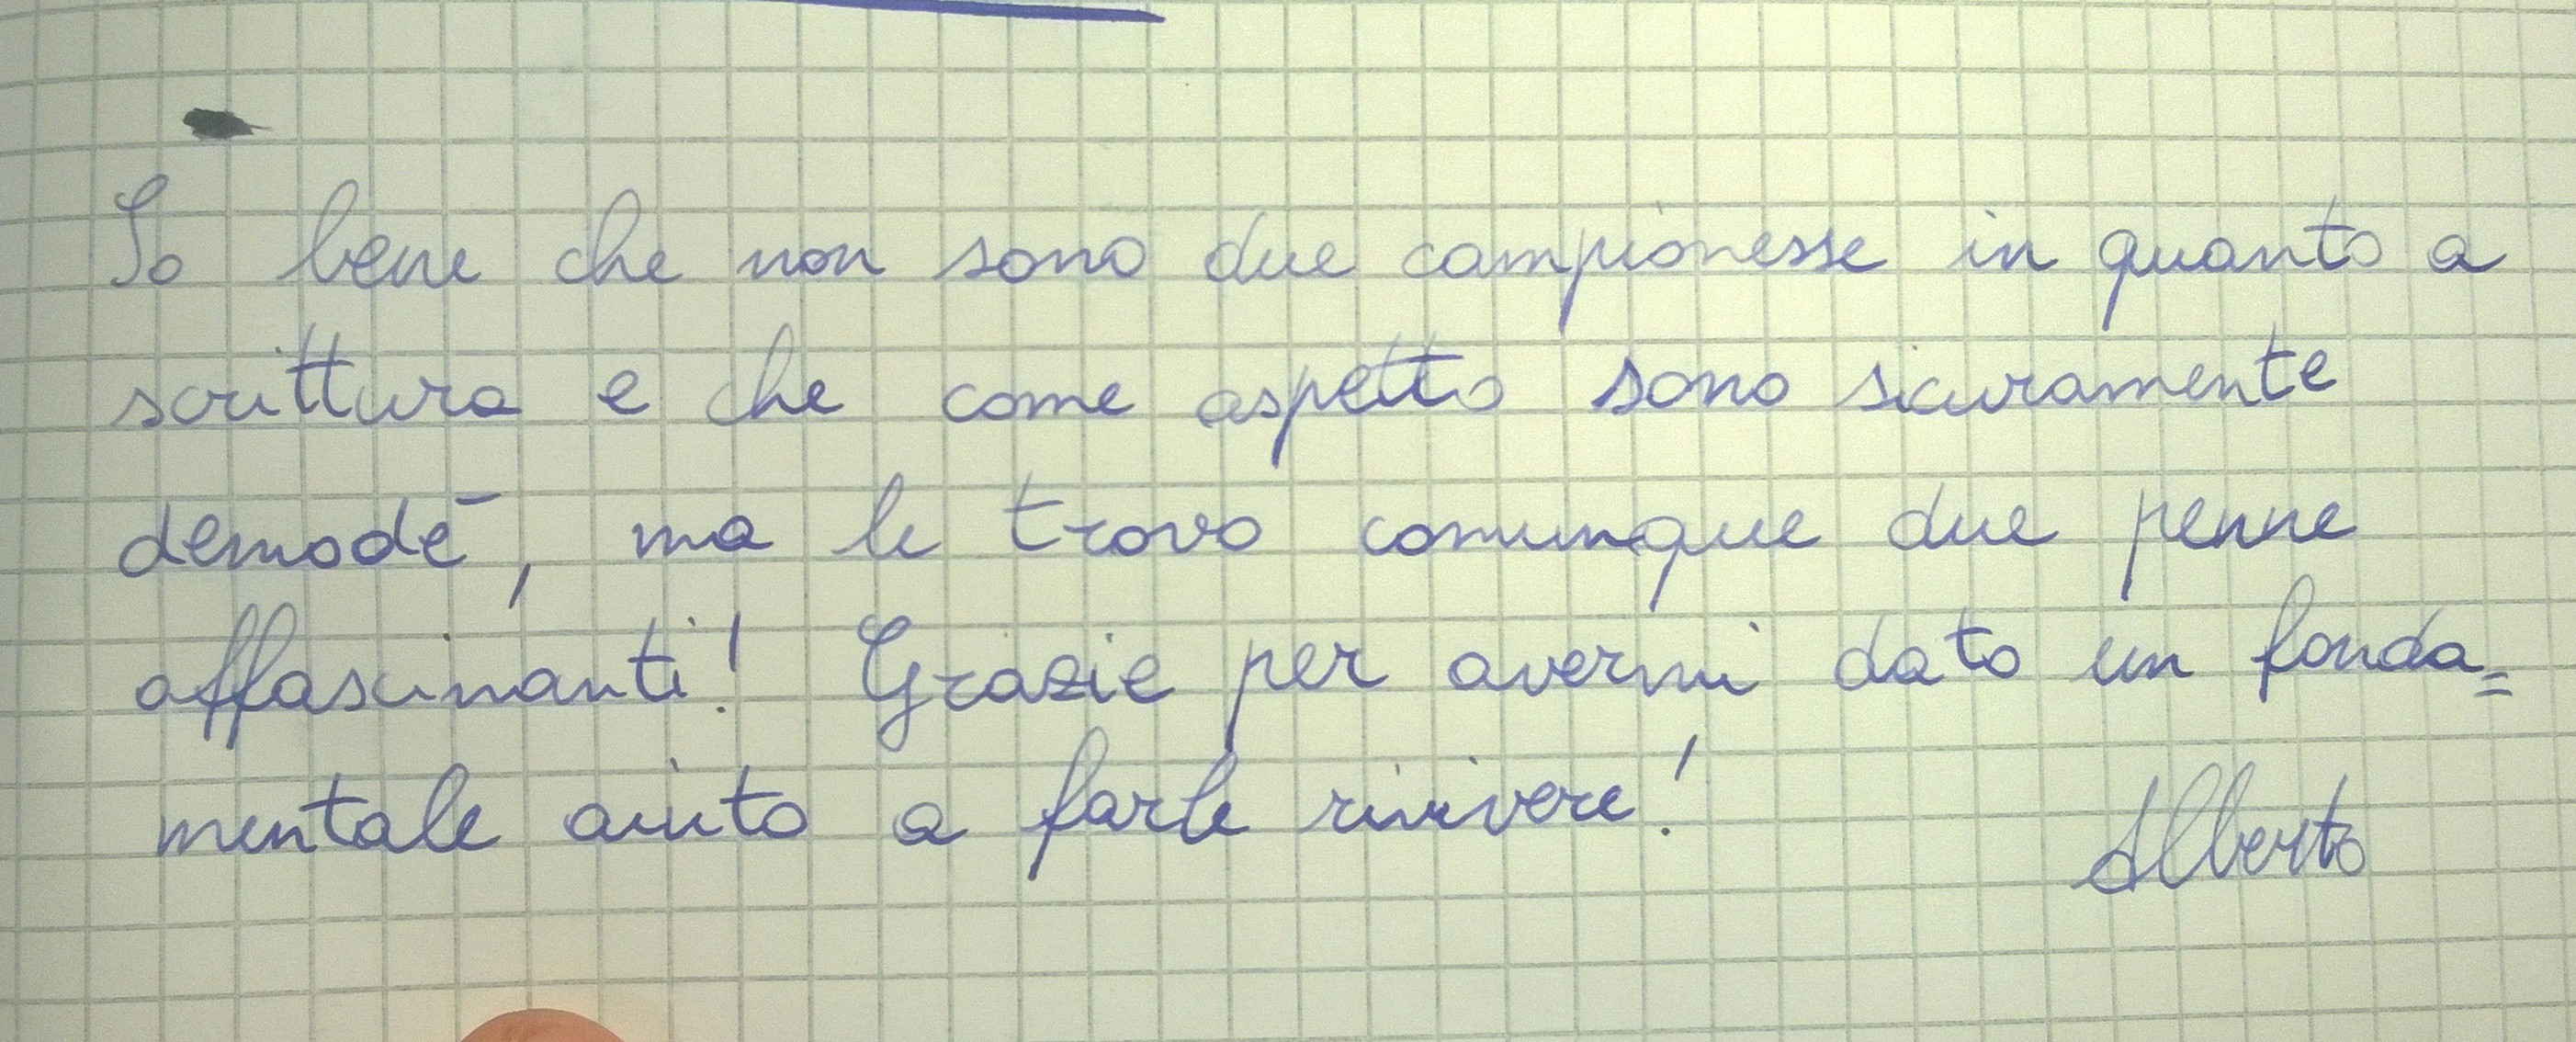 So bene che non sono due campionesse in quanto a
scrittura e che come aspetto sono sicuramente
demodé, ma le trovo comunque due penne
affascinanti! Grazie per avermi dato un fonda=
mentale aiuto a farle rivivere!
Alberto